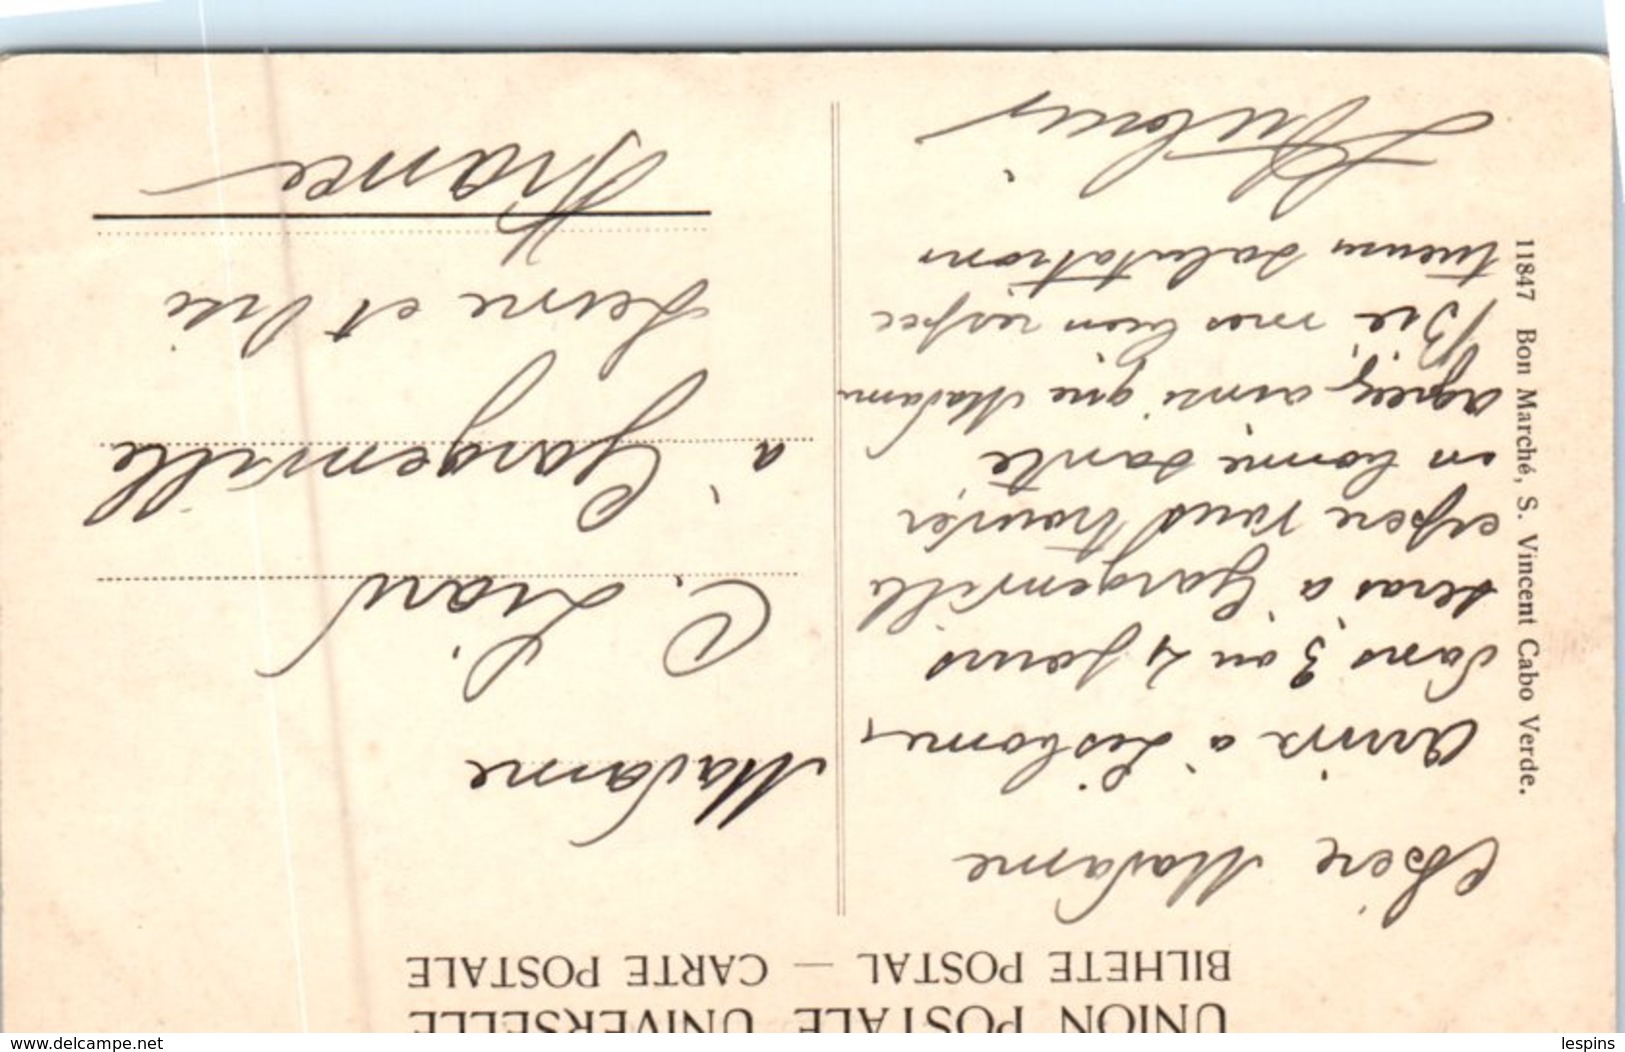 UNION POSTALE UNIVERSELLE
BILHETE POSTAL — CARTE POSTALE
Chère Madame
Arrivé à Lisbonne,
dans 3 ou 4 jours
serai à Gargenville
espère vous trouver
en bonne santé
agréez, ainsi que Madame
mes bien respec
tueuses salutations
Madame
C. Liard
à Gargenville
Seine et Oise
France
11847 Bon Marché, S. Vincent Cabo Verde.
www.delcampe.net
lespins